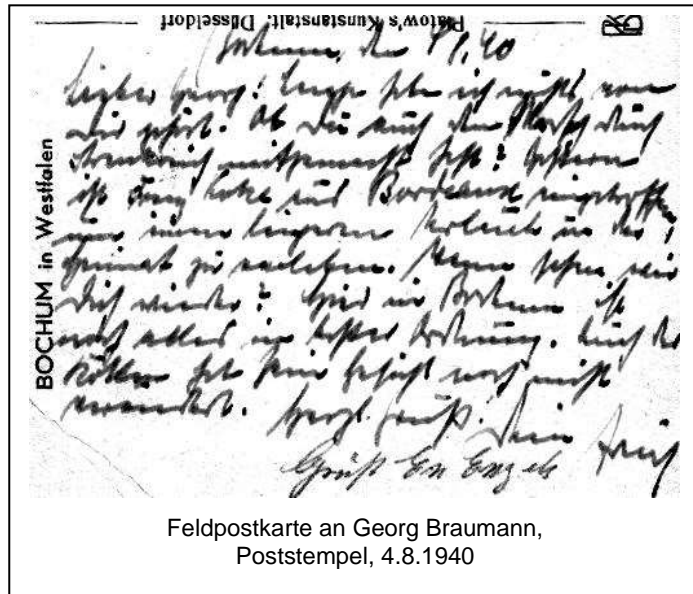 Platow's Kunstanstalt. Düsseldorf
BOCHUM in Westfalen
Bochum, den 4/8. 40
Lieber Georg! Lange habe ich nichts von
Dir gehört. Ob Du auch den Marsch durch
Frankreich mitgemacht hast? Gestern
ist Franz aus Bordeaux eingetroffen,
um einen längeren Urlaub in der
Heimat zu verleben. Wann sehen wir
Dich wieder? Hier in Bochum ist
noch alles in bester Ordnung. Auch der
hat sein Gesicht noch nicht
verändert. Herzl. Gruß! Dein
Gruß
Feldpostkarte an Georg Braumann,
Poststempel, 4.8.1940